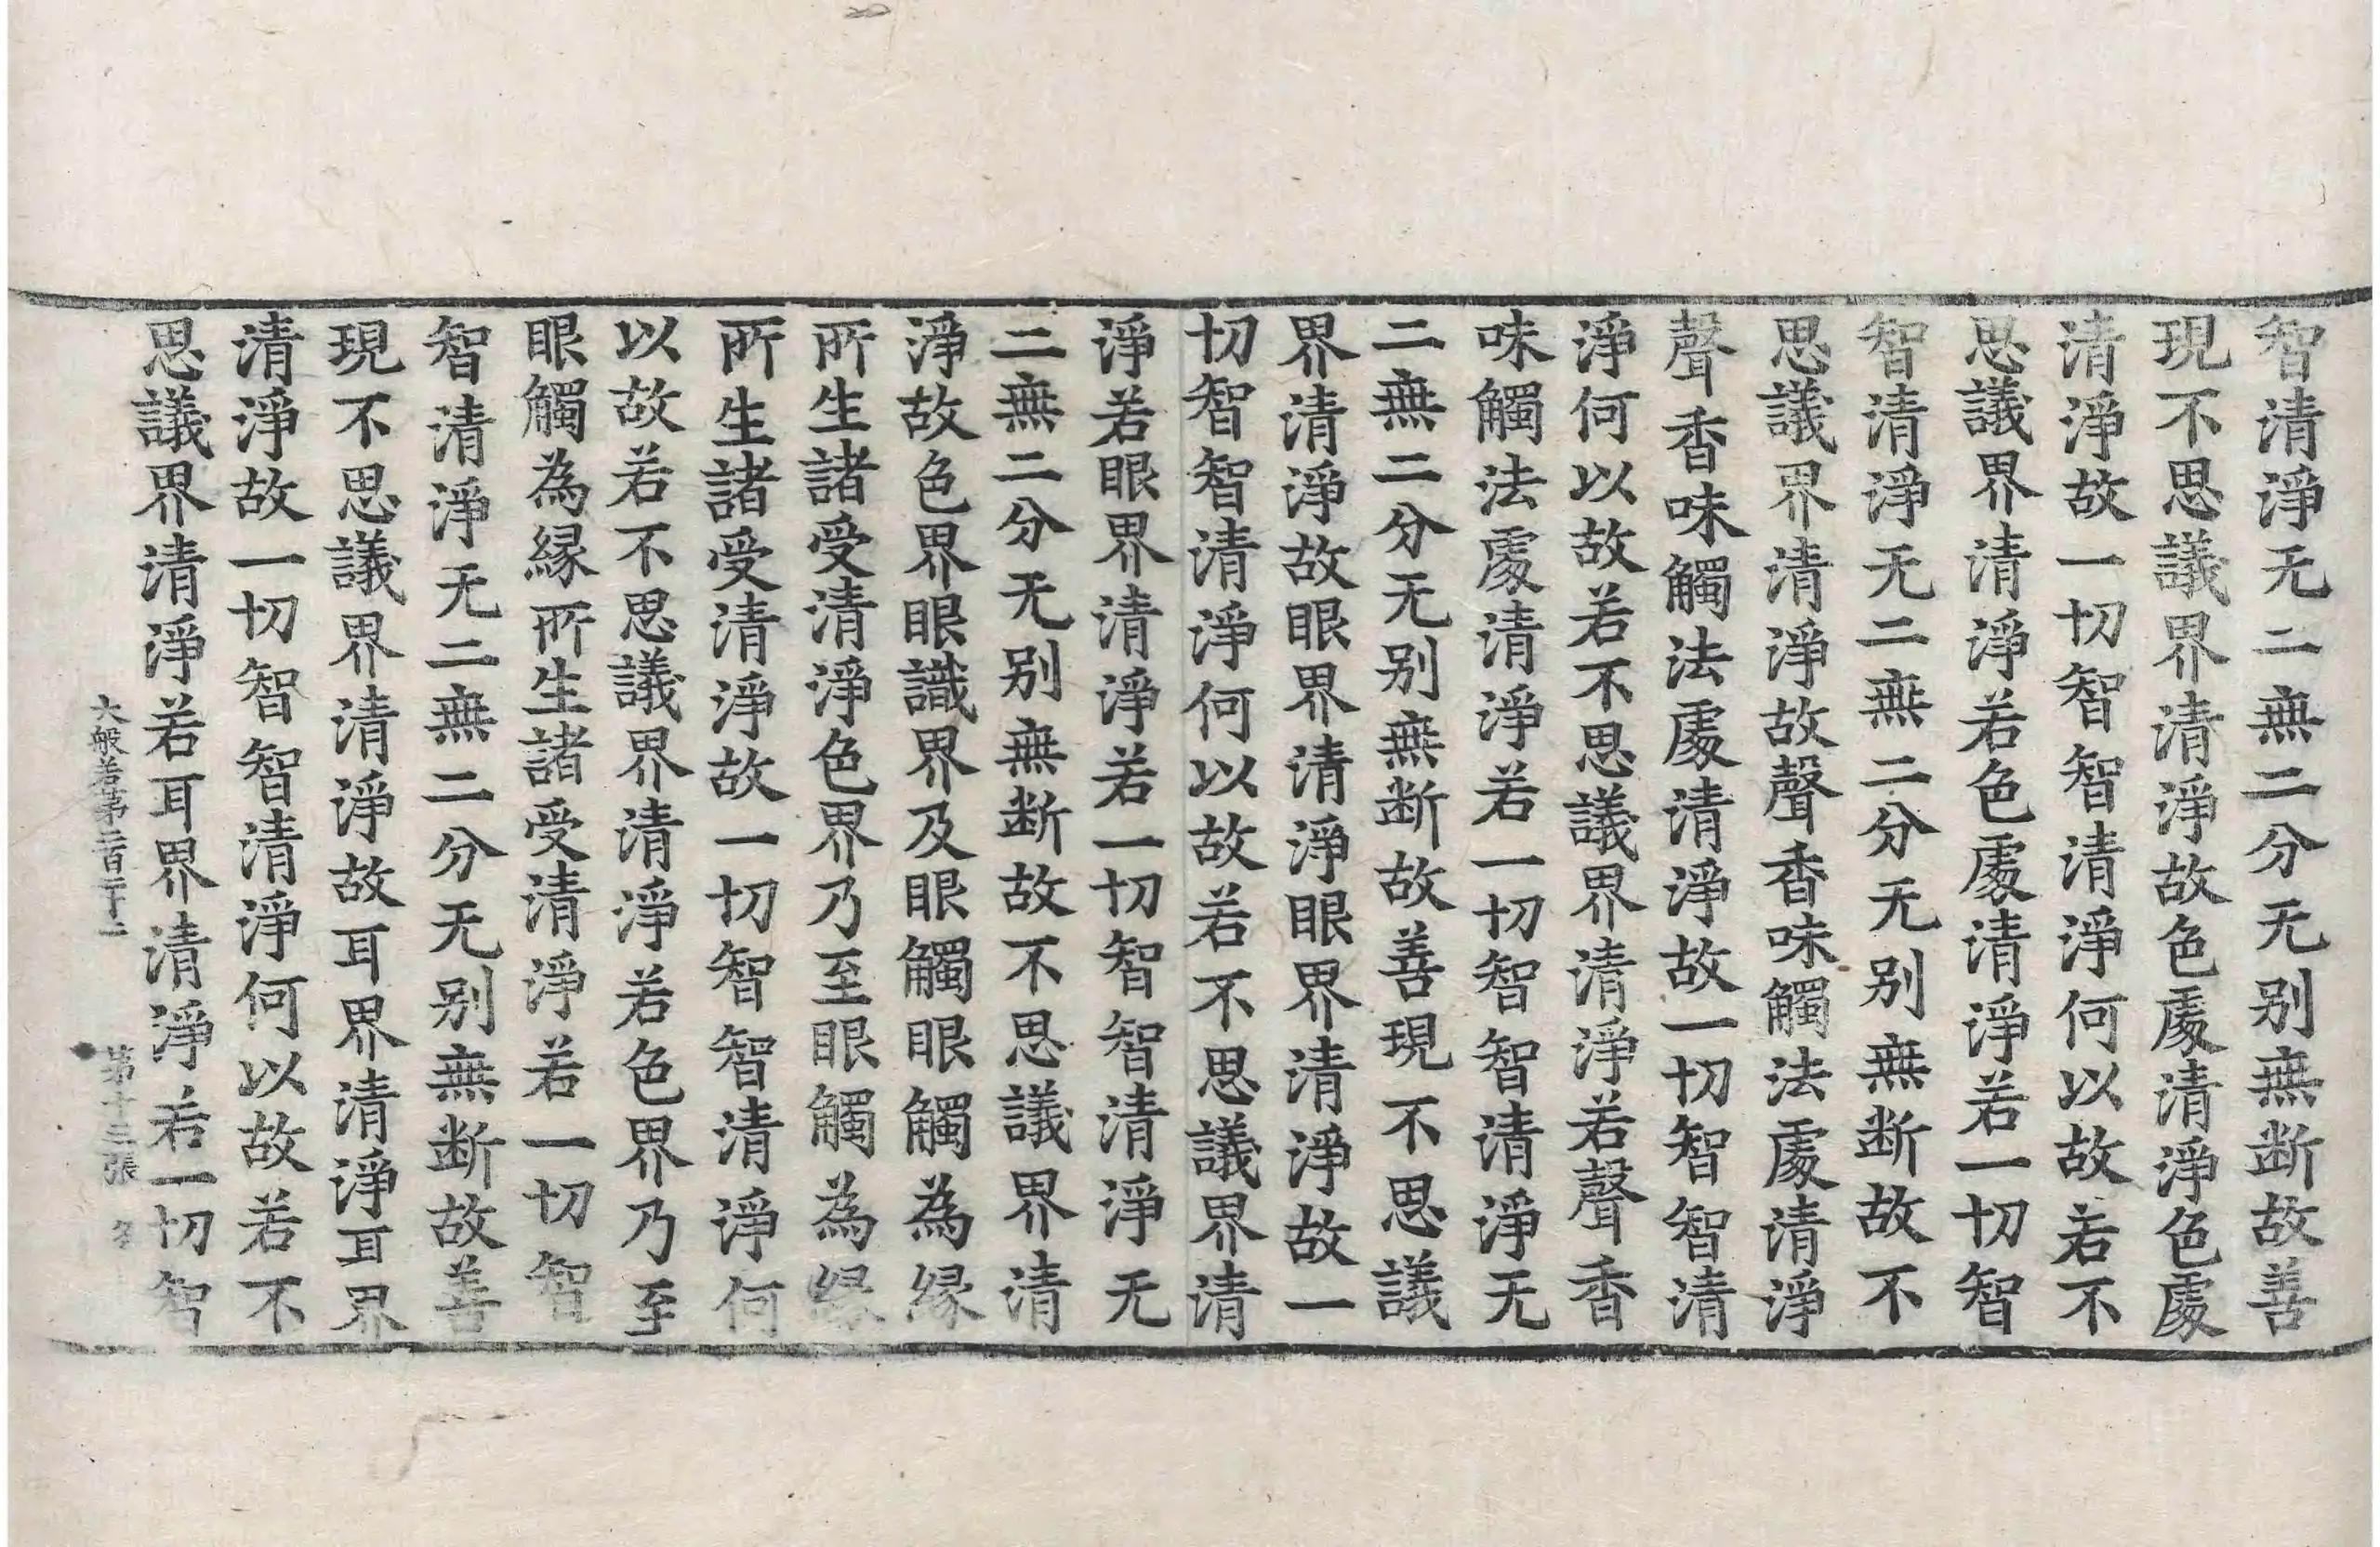 智清淨无二無二分无别無断故善
現不思議界清淨故色處清淨色處
清淨故一切智智清淨何以故若不
思議界清淨若色處清淨若一切智
智清淨无二無二分无别無断故不
思議界清淨故聲香味觸法處清淨
聲香味觸法處清淨故一切智智清
淨何以故若不思議界清淨若聲香
味觸法處清淨若一切智智清淨无
二無二分无别無断故善現不思議
界清淨故眼界清淨眼界清淨故一
切智智清淨何以故若不思議界清
淨若眼界清淨若一切智智清淨无
二無二分无别無断故不思議界清
淨故色界眼識界及眼觸眼觸為縁
所生諸受清淨色界乃至眼觸為縁
所生諸受清淨故一切智智清淨何
以故若不思議界清淨若色界乃至
眼觸為縁所生諸受清淨若一切智
智清淨无二無二分无别無断故善
現不思議界清淨故耳界清淨耳界
清淨故一切智智清淨何以故若不
思議界清淨若耳界清淨若一切智
大般若第二百二十二 第十三張